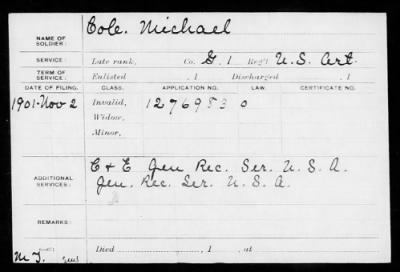 NAME OF SOLDIER: Cole. Michael
SERVICE: Late rank, Co. G. 1 Reg't U.S. Art.
TERM OF SERVICE: Enlisted , 1 Discharged , 1
DATE OF FILING. CLASS. APPLICATION NO. LAW. CERTIFICATE NO.
1901-Nov 2 Invalid, 1276983 0
Widow,
Minor,
ADDITIONAL SERVICES: C & E Gen Rec. Ser. U.S.A.
Gen. Rec. Ser. U.S.A.
REMARKS:
Died , 1 , at